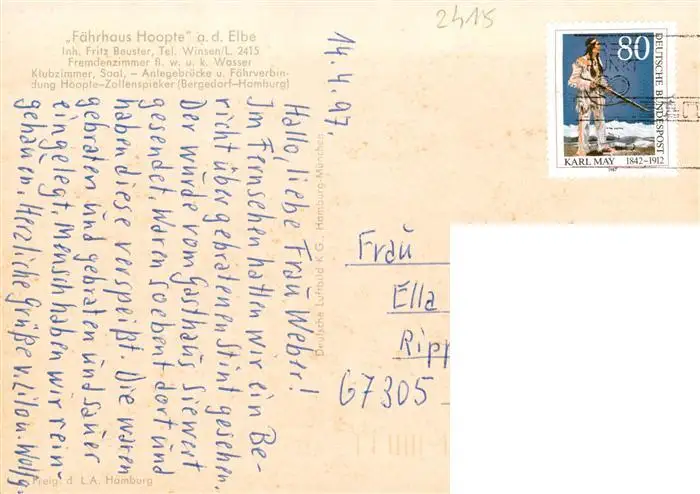 „Fährhaus Hoopte" a. d. Elbe
Inh. Fritz Beuster, Tel. Winsen/L. 2415
Fremdenzimmer fl. w. u. k. Wasser
Klubzimmer, Saal, – Anlegebrücke u. Fährverbin-
dung Hoopte–Zollenspieker (Bergedorf–Hamburg)
2415
14.4.97.
Hallo, liebe Frau Weber!
Im Fernsehen hatten wir ein Be-
richt über gebratenen Stint gesehen.
Der wurde vom Gasthaus Siewert
gesendet. Waren soeben dort und
haben diese verspeißt. Die waren
gebraten und gebraten und sauer
eingelegt. Mensch haben wir rein-
gehauen. Herzliche Grüße v. Lilo u. Wolfg.
Freig. d. L.A. Hamburg
Deutsche Luftbild K.G., Hamburg-München
80
DEUTSCHE BUNDESPOST
KARL MAY 1842–1912
1987
Frau
Ella
Ripp
67305